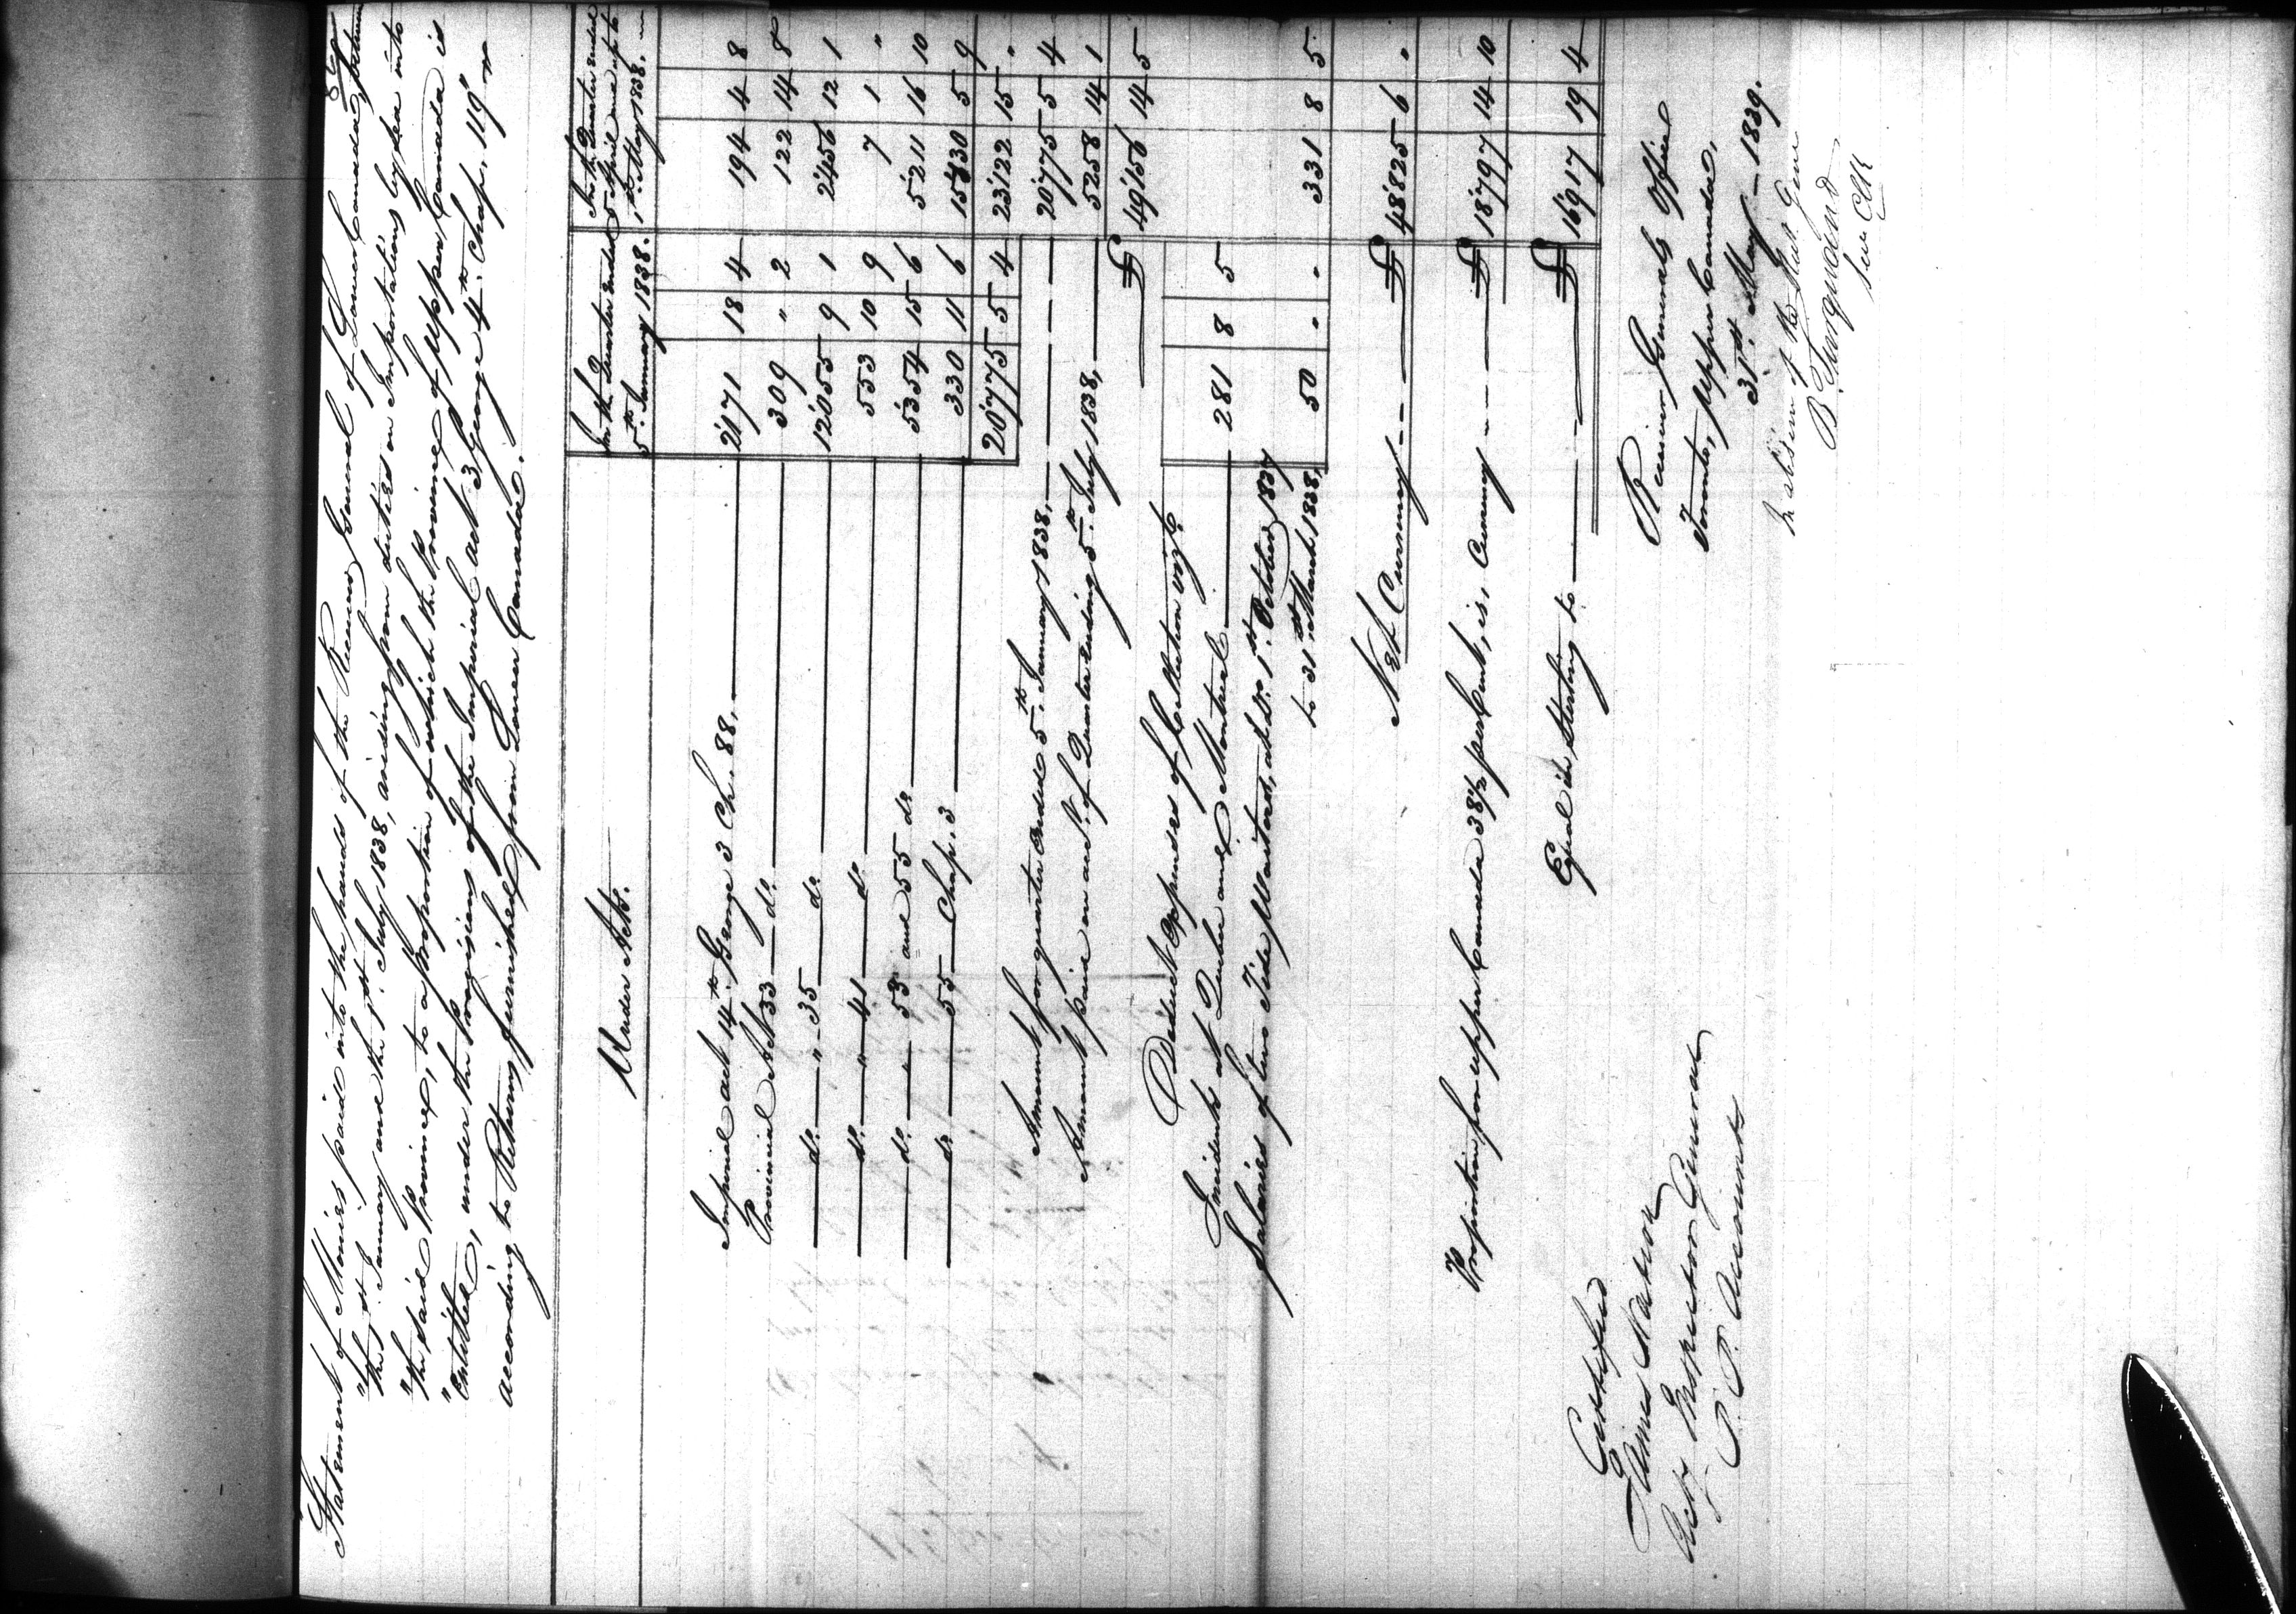 86
Statement of Monies paid into the hands of the Receiver General of Lower Canada, between
"the 1st January and the 1st July 1838, arising from duties on Importations by Sea into
"the said Province, to a proportion of which the Province of Upper Canada is
"Entitled, under the provisions of the Imperial act 3, George 4th Chap. 119"
according to Return furnished from Lower Canada.
Under Acts. In the Quarter ended 5th January 1838. In the Quarter ended 5 April made up to 1st May 1838.
Imperial act 14th George 3 Ch. 88, 2171 18 4 194 4 8
Provincial Act 33 do. 309 " 2 122 14 8
do. " 35 do. 12055 9 1 2456 12 1
do. " 41 do. 553 10 9 7 1 "
do. " 53 and 55 do. 5354 15 6 5211 16 10
do. 55 Chap. 3 330 11 6 15130 5 9
20775 5 4 23122 15 "
Amount for quarter ended 5th January 1838, 20775 5 4
Amount paid on acct. of Quarter ending 5th July 1838, 5258 14 1
£ 49156 14 5
Deduct Expenses of Collection viz:
Incidents at Quebec and Montreal 281 8 5
Salaries of two Tide Waiters, at do. 1st October 1837
to 31st March 1838, 50 " " 331 8 5
Net Currency £ 48825 6 "
Proportion for upper Canada 38½ per Cent, is, Currency £ 18797 14 10
Equal in Sterling to £ 16917 19 4
Receiver Generals Office
Toronto, Upper Canada,
31st May 1839.
In absence of the Recr. Genl
B. Turquand
Sen Clk
Certified
James Nation
Actg Inspector General
P. P. Accounts